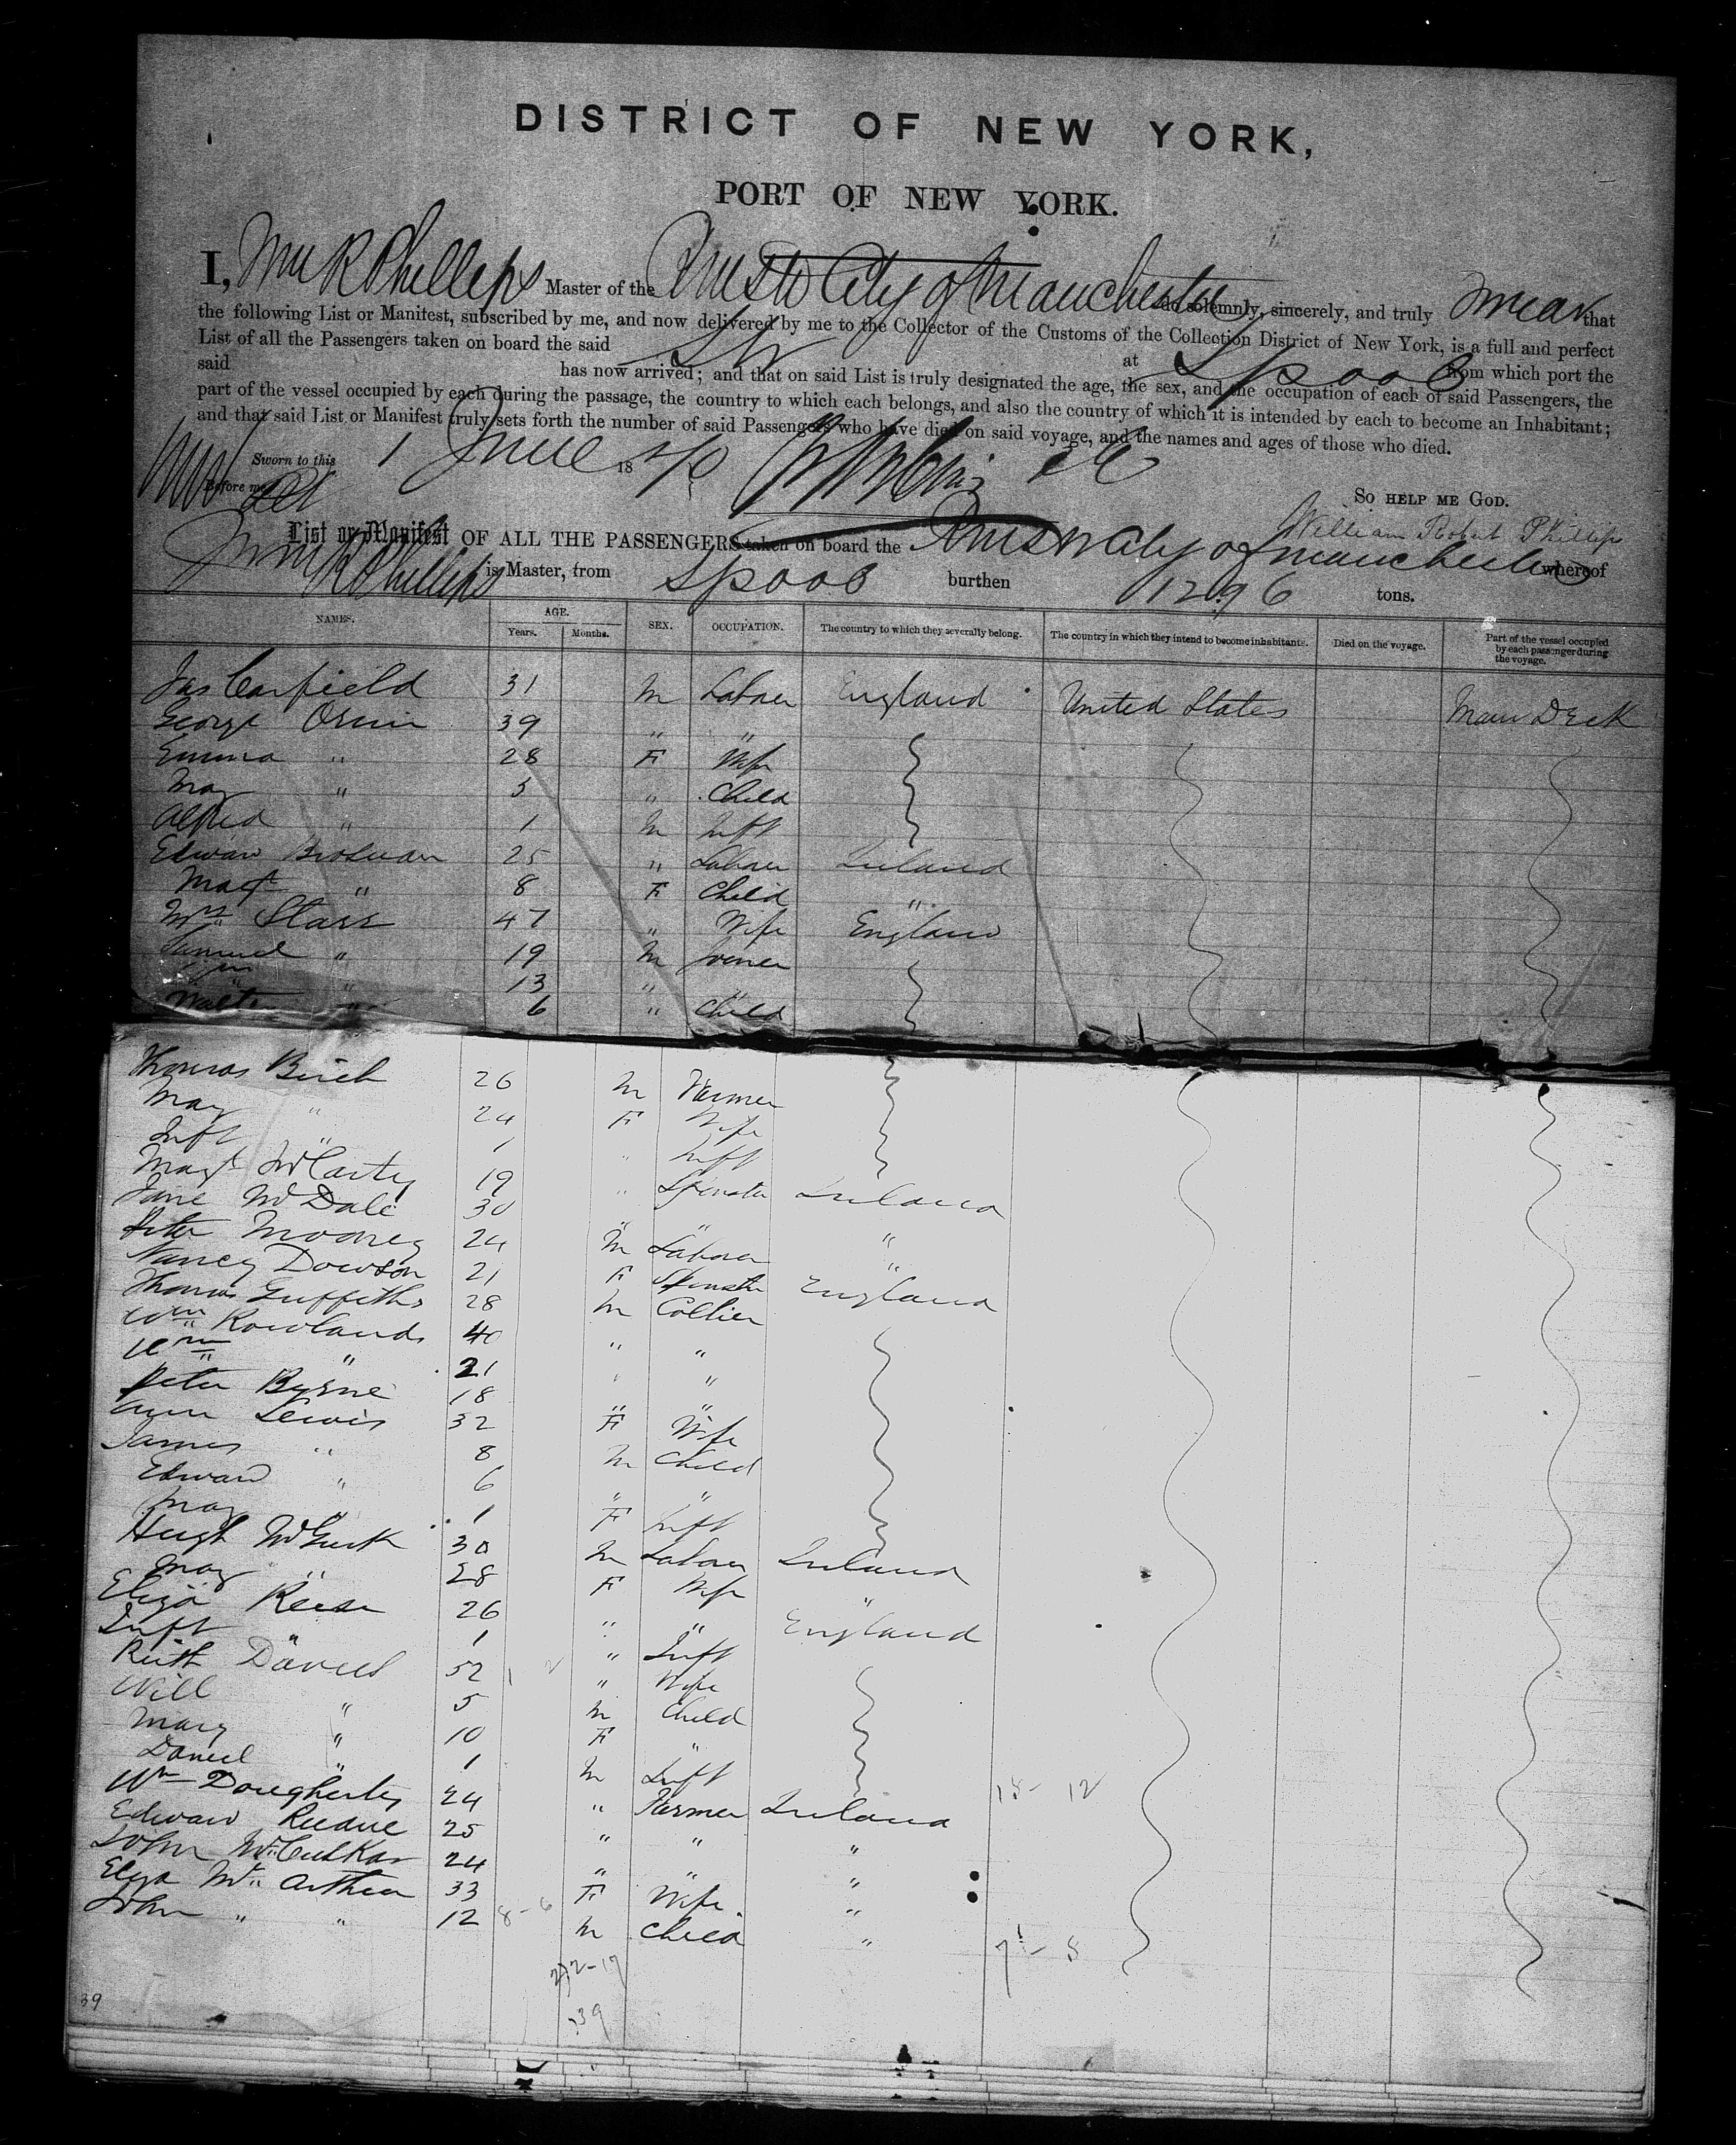 DISTRICT OF NEW YORK,
PORT OF NEW YORK.
I, Wm R Phillips Master of the City of Manchester do solemnly, sincerely, and truly swear that
the following List or Manifest, subscribed by me, and now delivered by me to the Collector of the Customs of the Collection District of New York, is a full and perfect
List of all the Passengers taken on board the said Str at Lpool from which port the
said has now arrived; and that on said List is truly designated the age, the sex, and the occupation of each of said Passengers, the
part of the vessel occupied by each during the passage, the country to which each belongs, and also the country of which it is intended by each to become an Inhabitant;
and that said List or Manifest truly sets forth the number of said Passengers who have died on said voyage, and the names and ages of those who died.
Sworn to this 1 June 1870
Before me
So HELP ME GOD.
William Robert Phillips
List or Manifest OF ALL THE PASSENGERS taken on board the City of Manchester whereof
Wm R Phillips is Master, from Lpool burthen 1296 tons.
NAMES. AGE. Years. Months. SEX. OCCUPATION. The country to which they severally belong. The country in which they intend to become inhabitants. Died on the voyage. Part of the vessel occupied by each passenger during the voyage.
Jas Canfield 31 M Laborer England United States Main Deck
George 39 " "
Emma " 28 F Wife
May " 3 " Child
Alfred " 1 M Inft
Edward Brosnan 25 " Laborer Ireland
Magt " 8 F Child "
Mrs Starr 47 " Wife England
Samuel " 19 M Joiner
Wm " 13 " "
Walter " 6 " Child
Thomas Birch 26 M Farmer
May " 24 F Wife
Inft " 1 " Inft
Magt McCarty 19 " Spinster Ireland
Jane McDale 30 " " "
Peter Mooney 24 M Laborer "
Nancy Dowson 21 F Spinster England
Thomas Griffiths 28 M Collier
Wm Rowlands 40 " "
Wm " 21 " "
Peter Byrne 18 " "
Ann Lewis 32 F Wife
James " 8 M Child
Edward " 6 " "
May " 1 F Inft
Hugh McGurk 30 M Laborer Ireland
May " 28 F Wife "
Eliza Reese 26 " " England
Inft " 1 " Inft
Ruth Daniels 52 " Wife
Will " 5 M Child
Mary " 10 F "
Daniel " 1 M Inft
Wm Dougherty 24 " Farmer Ireland
Edward 25 " " "
John 24 " " "
Eliza McArthur 33 F Wife "
John " " 12 M Child "
39
39